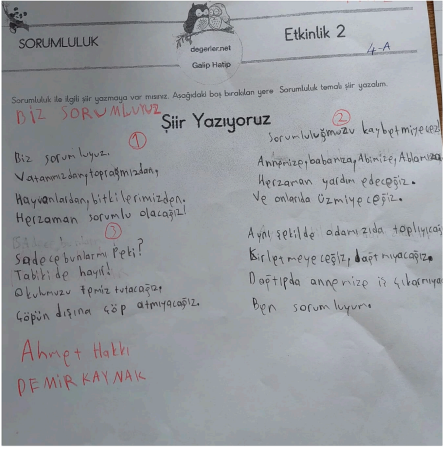 SORUMLULUK
degerler.net
Galip Hatip
Etkinlik 2
4-A
Sorumluluk ile ilgili şiir yazmaya var mısınız. Aşağıdaki boş bırakılan yere Sorumluluk temalı şiir yazalım.
BİZ SORUMLUYUZ
Şiir Yazıyoruz
1
Biz sorumluyuz.
Vatanımızdan, toprağımızdan,
Hayvanlardan, bitkilerimizden.
Herzaman sorumlu olacağız!
3
Sadece bunlarmı Peki?
Tabiki de hayır!
Okulumuzu temiz tutacağız,
Çöpün dışına çöp atmıyacağız.
2
Sorumluluğmuzu kaybetmiyeceğ
Annemize, babamıza, Abimize, Ablamıza
Herzaman yardım edeceğiz.
Ve onlarıda üzmiyeceğiz.
Aynı şekilde odamızıda toplıyıcağ
Kirletmeyeceğiz, dağıtmıyacağız.
Dağtıpda annemize iş çıkarmıya
Ben sorumluyum.
Ahmet Hakkı
DEMİRKAYNAK